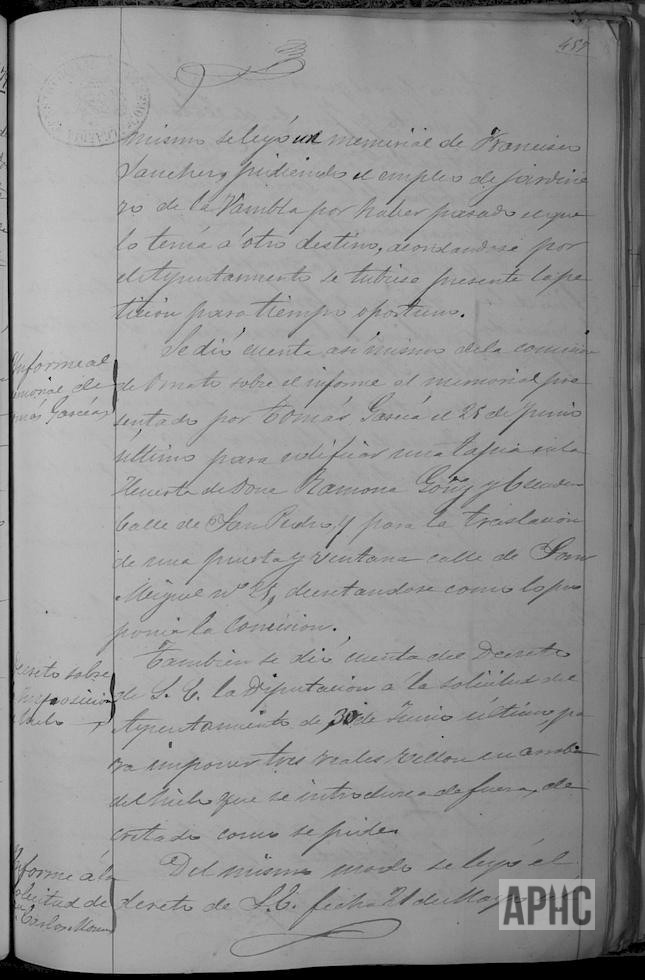 457
mismo se leyó un memorial de Francisco
Sanchez, pidiendo el empleo de jardine
ro de la Rambla por haber pasado el que
lo tenía á otro destino, acordandose por
el Ayuntamiento se tubiese presente la pe
ticion para tiempo oportuno.
Informe al
memorial de
Tomás García,
Se dió cuenta asi mismo de la comision
de Ornato sobre el informe al memorial pre
sentado por Tomás García el 25 de Junio
último para edificar una tapia en la
Huerta de Dona Ramona Goñy y
Calle de San Pedro, y para la traslacion
de una puerta y ventana calle de San
Miguel nº 25, decretandose como lo pro
ponia la Comision.
Decreto sobre
imposicion
hielo
Tambien se dió cuenta del Decreto
de S. E. la Diputacion a la solicitud del
Ayuntamiento de 30 de Junio ultimo pa
ra imponer tres reales vellon en arroba
del hielo que se introduzca de fuera, de
cretado como se pide.
Informe á la
solicitud de
Carlos
Del mismo modo se leyó el
decreto de S. E. fecha 21 de Mayo
APHC